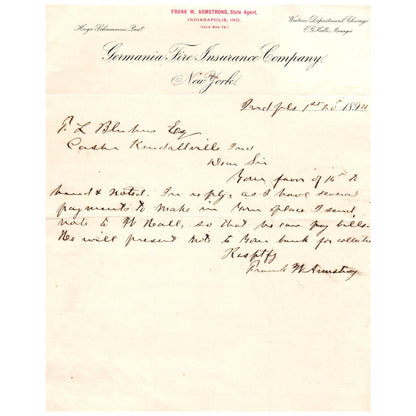 FRANK W. ARMSTRONG, State Agent,
INDIANAPOLIS, IND.
Hugo Schumann, Prest.
Western Department Chicago
E.G. Halle, Manager
Germania Fire Insurance Company,
New York.
Indpls 189
Esq
Cashr Kendallville Ind
Dear Sir
Your favor of to
hand & Noted. In reply, as I have several
payments to make in your place I send
note to W Hall, so that he can pay bills.
He will present note to your bank for collection
Resptfy
Frank W Armstrong